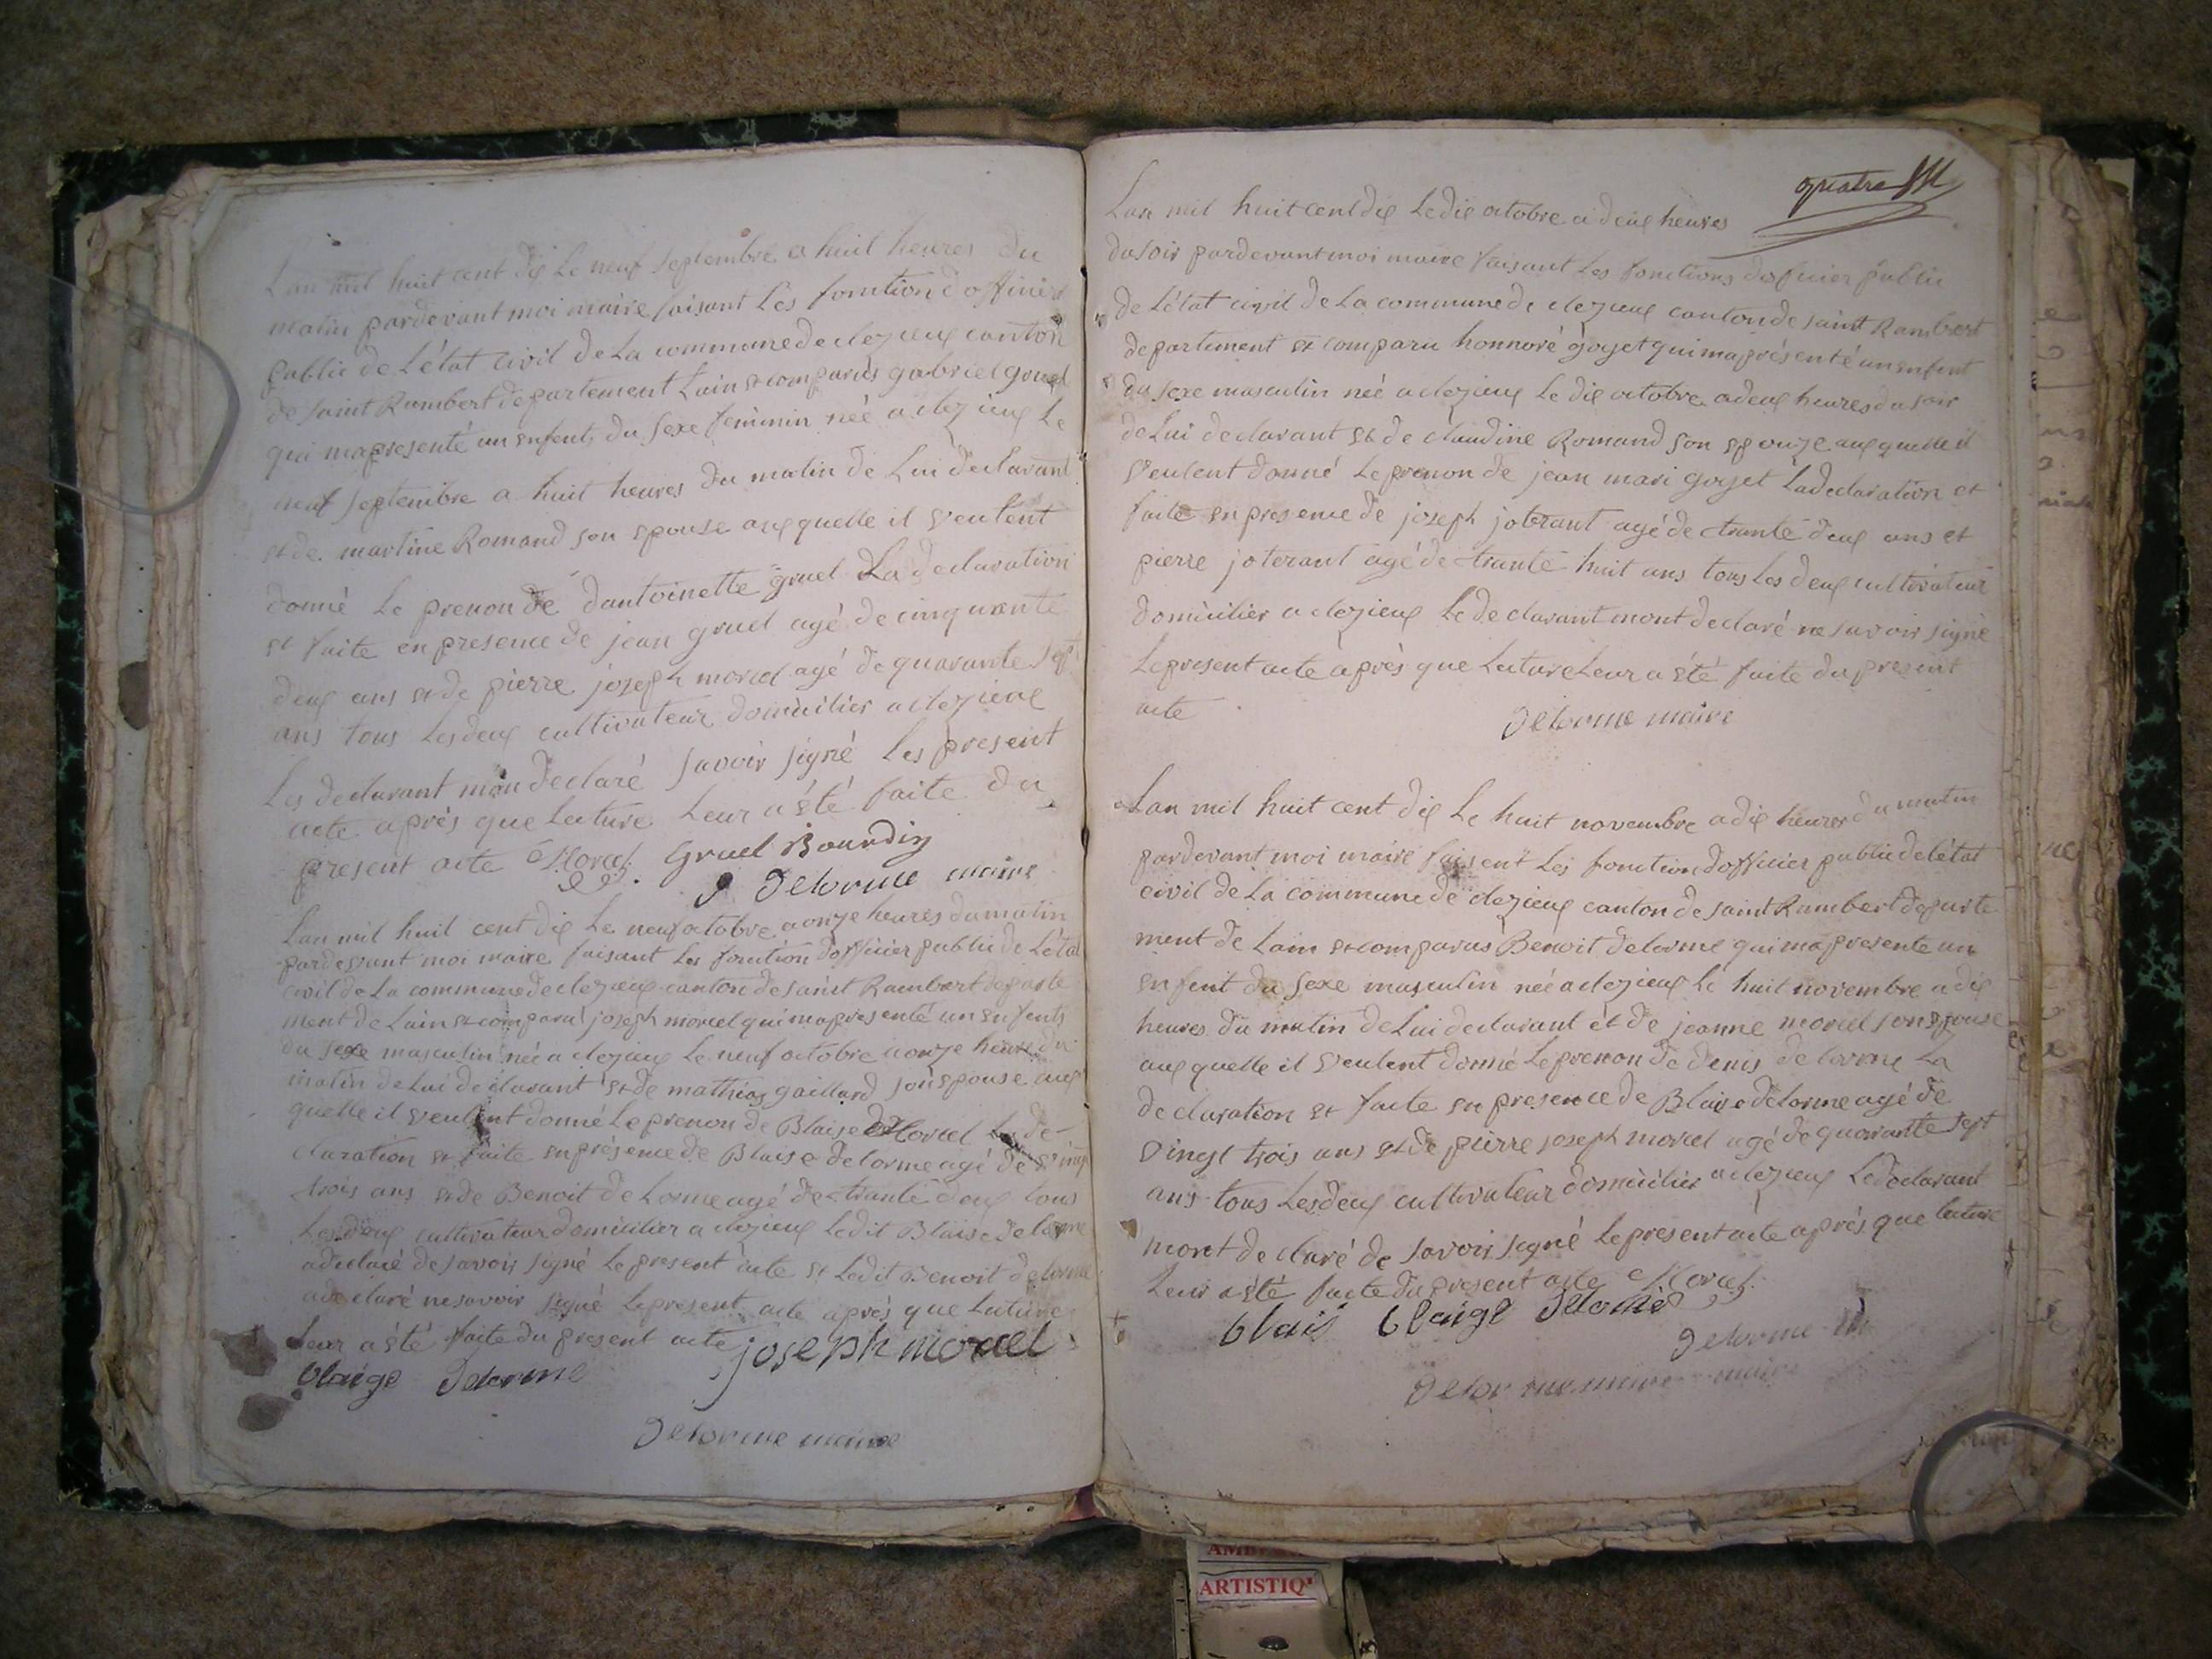 Lan mil huit cent dix Le neuf Septembre a huit heures du
matin pardevant moi maire faisant Les fonction dofficier
public de Létat civil de La commune de clezieux canton
de Saint Rambert departement Lain et comparus gabriel gruel
qui ma presenté un enfent du Sexe feminin née a clezieux Le
neuf Septembre a huit heures du matin de Lui declarant
et de martine Romand son epouse aux quelle il veulent
donné Le prenon de dantoinette gruel La declaration
et faite en presence de jean gruel agé de cinquante
deux ans et de pierre joseph morcel agé de quarante sept
ans tous Les deux cultivateur domicilier a clezieux
Les declarant mon declaré savoir signé Les present
acte après que Lecture Leur a été faite du
present acte Morcel Gruel Bourdin
Delorme maire
Lan mil huit cent dix Le neuf octobre a onze heures du matin
pardevant moi maire faisant Les fonction dofficier public de Létat
civil de La commune de clezieux canton de Saint Rambert departe
ment de Lain et comparu joseph morcel qui ma presenté un enfents
du Sexe masculin née a clezieux Le neuf octobre a onze heure du
matin de Lui declarant et de mathias gaillard son epouse aux
quelle il veulent donné Le prenon de Blaise Morcel La de-
claration et faite en présence de Blaise delorme agé de vingt
trois ans et de Benoit de Lorme agé de trante deux tous
Les deux cultivateur domicilier a clezieux Ledit Blaise delorme
a declaré de savoir signé Le present acte et Ledit Benoit delorme
a declaré ne savoir signé Le present acte après que Lecture
Leur a été faite du present acte joseph morcel
blaige Delorme
Delorme maire
quatre
Lan mil huit cent dix Le dix octobre a deux heures
du soir pardevant moi maire faisant Les fonctions dofficier public
de Létat civil de La commune de clezieux canton de saint Rambert
departement et comparu honnoré goyet qui ma présenté un enfent
du sexe masculin néé a clezieux Le dix octobre a deux heures du soir
de Lui declarant et de claudine Romand son epouze aux quelle il
veulent donné Le prenon de jean mari goyet La declaration et
faite en presence de jozeph joterant agé de trante deux ans et
pierre joterant agé de trante huit ans tous Les deux cultivateur
domicilier a clezieux Le declarant mont declaré ne savoir signé
Le present acte après que Lecture Leur a été faite du present
acte
Delorme maire
Lan mil huit cent dix Le huit novembre a dix heures du matin
pardevant moi maire faisent Les fonction dofficier public de létat
civil de La commune de clezieux canton de saint Rambert departe
ment de Lain et comparus Benoit delorme qui ma presente un
enfent du sexe masculin née a clezieux Le huit novembre a dix
heures du matin de Lui declarant et de jeanne morcel son epouse
aux quelle il veulent donné Le prenon de denis de lorme La
declaration et faite en presence de Blaise delorme agé de
vingt trois ans et de pierre joseph morcel agé de quarante sept
ans tous Les deux cultivateur domicilier a clezieux Le declarant
mont declaré de savoir signé Le present acte après que lecture
Leur a été faite du present acte Morcel
blais blaige Delorme
Delorme
Delorme maire maire
ARTISTIQ